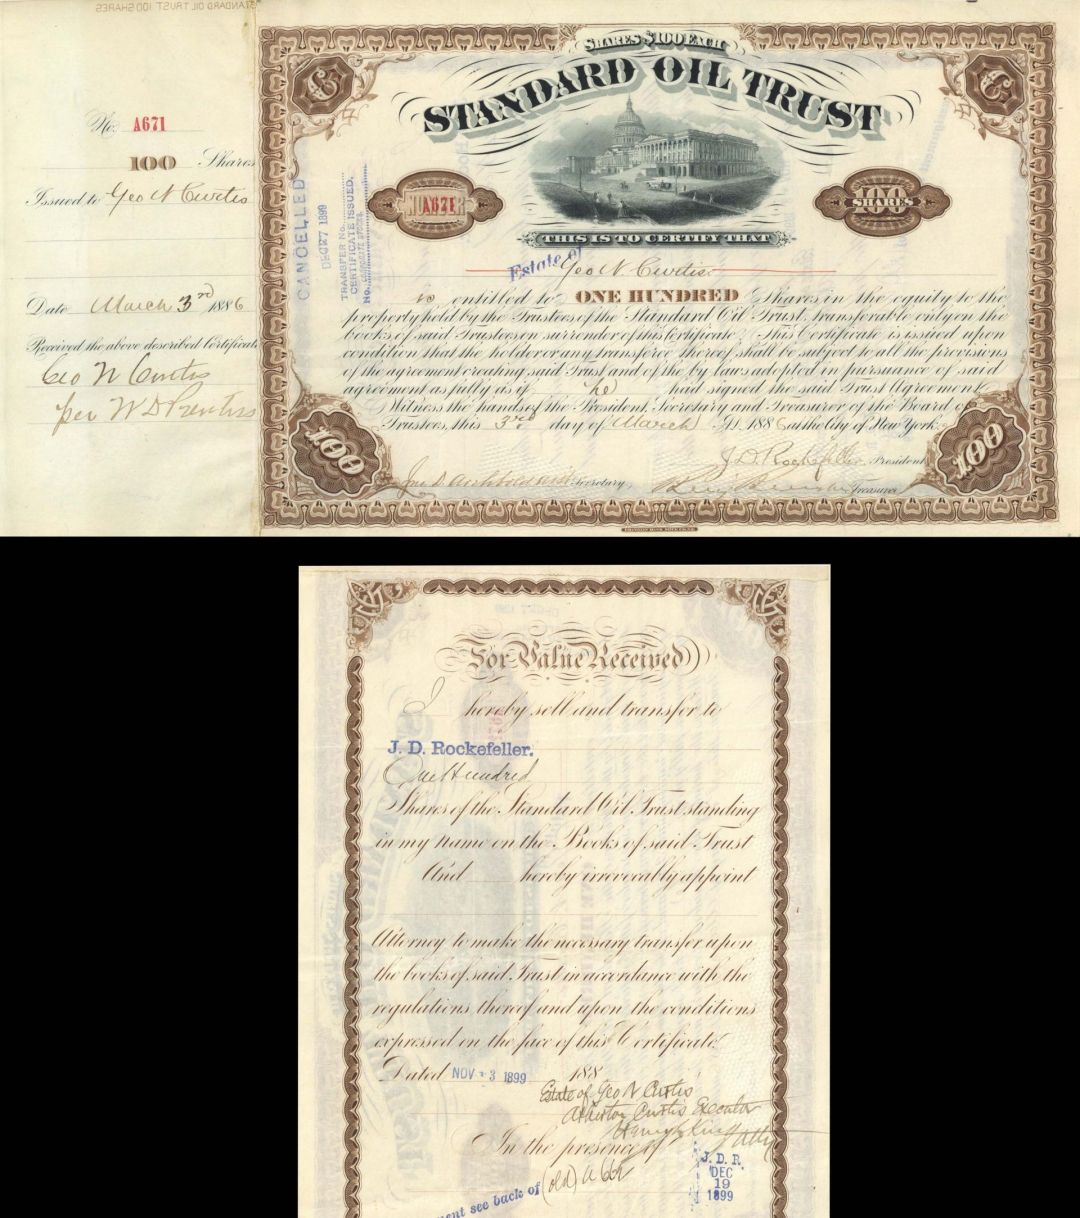 STANDARD OIL TRUST 100 SHARES
No. A671
100 Shares
Issued to Geo N Curtis
Date March 3rd 1886
Received the above described Certificate
Geo N Curtis
per W D
SHARES $100 EACH
STANDARD OIL TRUST
CANCELLED
DEC 7 1899
TRANSFER No.
CERTIFICATE ISSUED.
No.
NUMBER
A671
100
SHARES
THIS IS TO CERTIFY THAT
Estate of
Geo N Curtis
is entitled to ONE HUNDRED Shares in the equity to the
property held by the Trustees of the Standard Oil Trust, transferable only on the
books of said Trustees on surrender of this Certificate. This Certificate is issued upon
condition that the holder or any transferee thereof shall be subject to all the provisions
of the agreement creating said Trust and of the by laws adopted in pursuance of said
agreement as fully as if he had signed the said Trust Agreement
Witness the hands of the President, Secretary and Treasurer of the Board of
Trustees, this 3rd day of March A.D. 1886 at the City of New York.
J. D. Rockefeller President
Jno D Archbold Secretary
Treasurer
100
100
For Value Received
I hereby sell and transfer to
J. D. Rockefeller.
One Hundred
Shares of the Standard Oil Trust standing
in my name on the Books of said Trust
And hereby irrevocably appoint
Attorney to make the necessary transfer upon
the books of said Trust in accordance with the
regulations thereof and upon the conditions
expressed on the face of this Certificate
Dated NOV 3 1899 188
Estate of Geo N Curtis
Atherton Curtis Executor
Atty
In the presence of
J. D. R.
DEC
19
1899
see back of (old) A